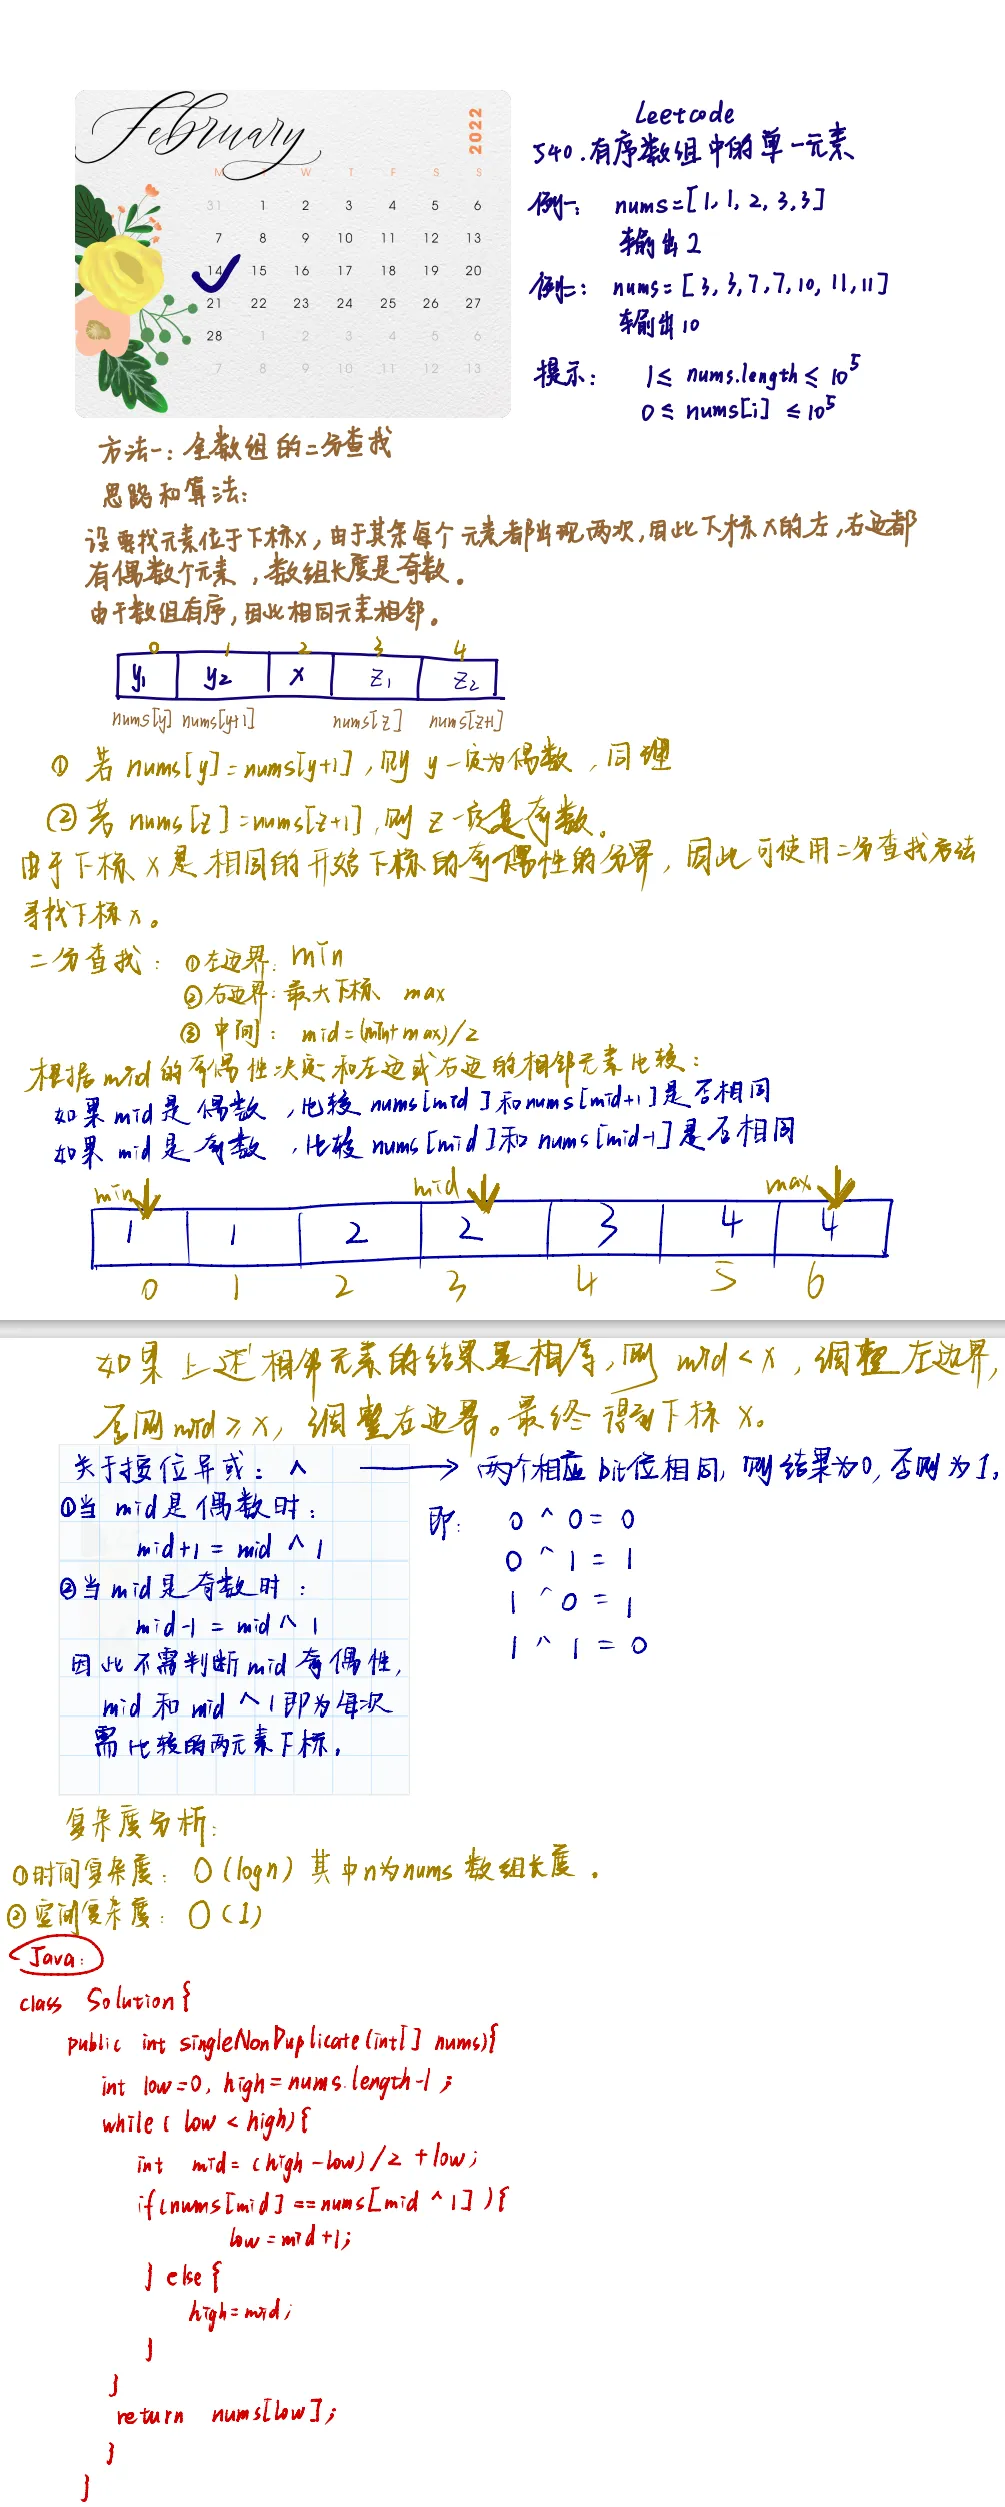 February
2022
M T W T F S S
31 1 2 3 4 5 6
7 8 9 10 11 12 13
14 15 16 17 18 19 20
21 22 23 24 25 26 27
28 1 2 3 4 5 6
7 8 9 10 11 12 13
Leetcode
540.有序数组中的单一元素
例一: nums=[1,1,2,3,3]
输出2
例二: nums=[3,3,7,7,10,11,11]
输出10
提示: 1≤ nums.length≤10^5
0≤ nums[i] ≤10^5
方法一:全数组的二分查找
思路和算法:
设要找元素位于下标x,由于其余每个元素都出现两次,因此下标x的左,右边都
有偶数个元素,数组长度是奇数。
由于数组有序,因此相同元素相邻。
0 1 2 3 4
y1 y2 x z1 z2
nums[y] nums[y+1] nums[z] nums[z+1]
① 若 nums[y]=nums[y+1],则 y一定为偶数,同理
② 若 nums[z]=nums[z+1],则 z一定是奇数。
由于下标x是相同的开始下标的奇偶性的分界,因此可使用二分查找方法
寻找下标x。
二分查找: ①左边界: min
②右边界:最大下标 max
③ 中间: mid=(min+max)/2
根据mid的奇偶性决定和左边或右边的相邻元素比较:
如果mid是偶数,比较nums[mid]和nums[mid+1]是否相同
如果mid是奇数,比较nums[mid]和nums[mid-1]是否相同
min mid max
1 1 2 2 3 4 4
0 1 2 3 4 5 6
如果上述相邻元素的结果是相等,则mid<x,调整左边界,
否则mid≥x,调整右边界。最终得到下标x。
关于按位异或: ^ → 两个相应bit位相同,则结果为0,否则为1。
①当mid是偶数时:
mid+1 = mid ^ 1
②当mid是奇数时:
mid-1 = mid ^ 1
因此不需判断mid奇偶性,
mid和mid ^ 1即为每次
需比较的两元素下标。
即: 0 ^ 0 = 0
0 ^ 1 = 1
1 ^ 0 = 1
1 ^ 1 = 0
复杂度分析:
①时间复杂度: O(logn) 其中n为nums数组长度.
②空间复杂度: O(1)
Java:
class Solution{
public int singleNonDuplicate(int[] nums){
int low=0, high=nums.length-1;
while( low < high){
int mid=(high-low)/2+low;
if(nums[mid]==nums[mid ^ 1]){
low=mid+1;
} else{
high=mid;
}
}
return nums[low];
}
}